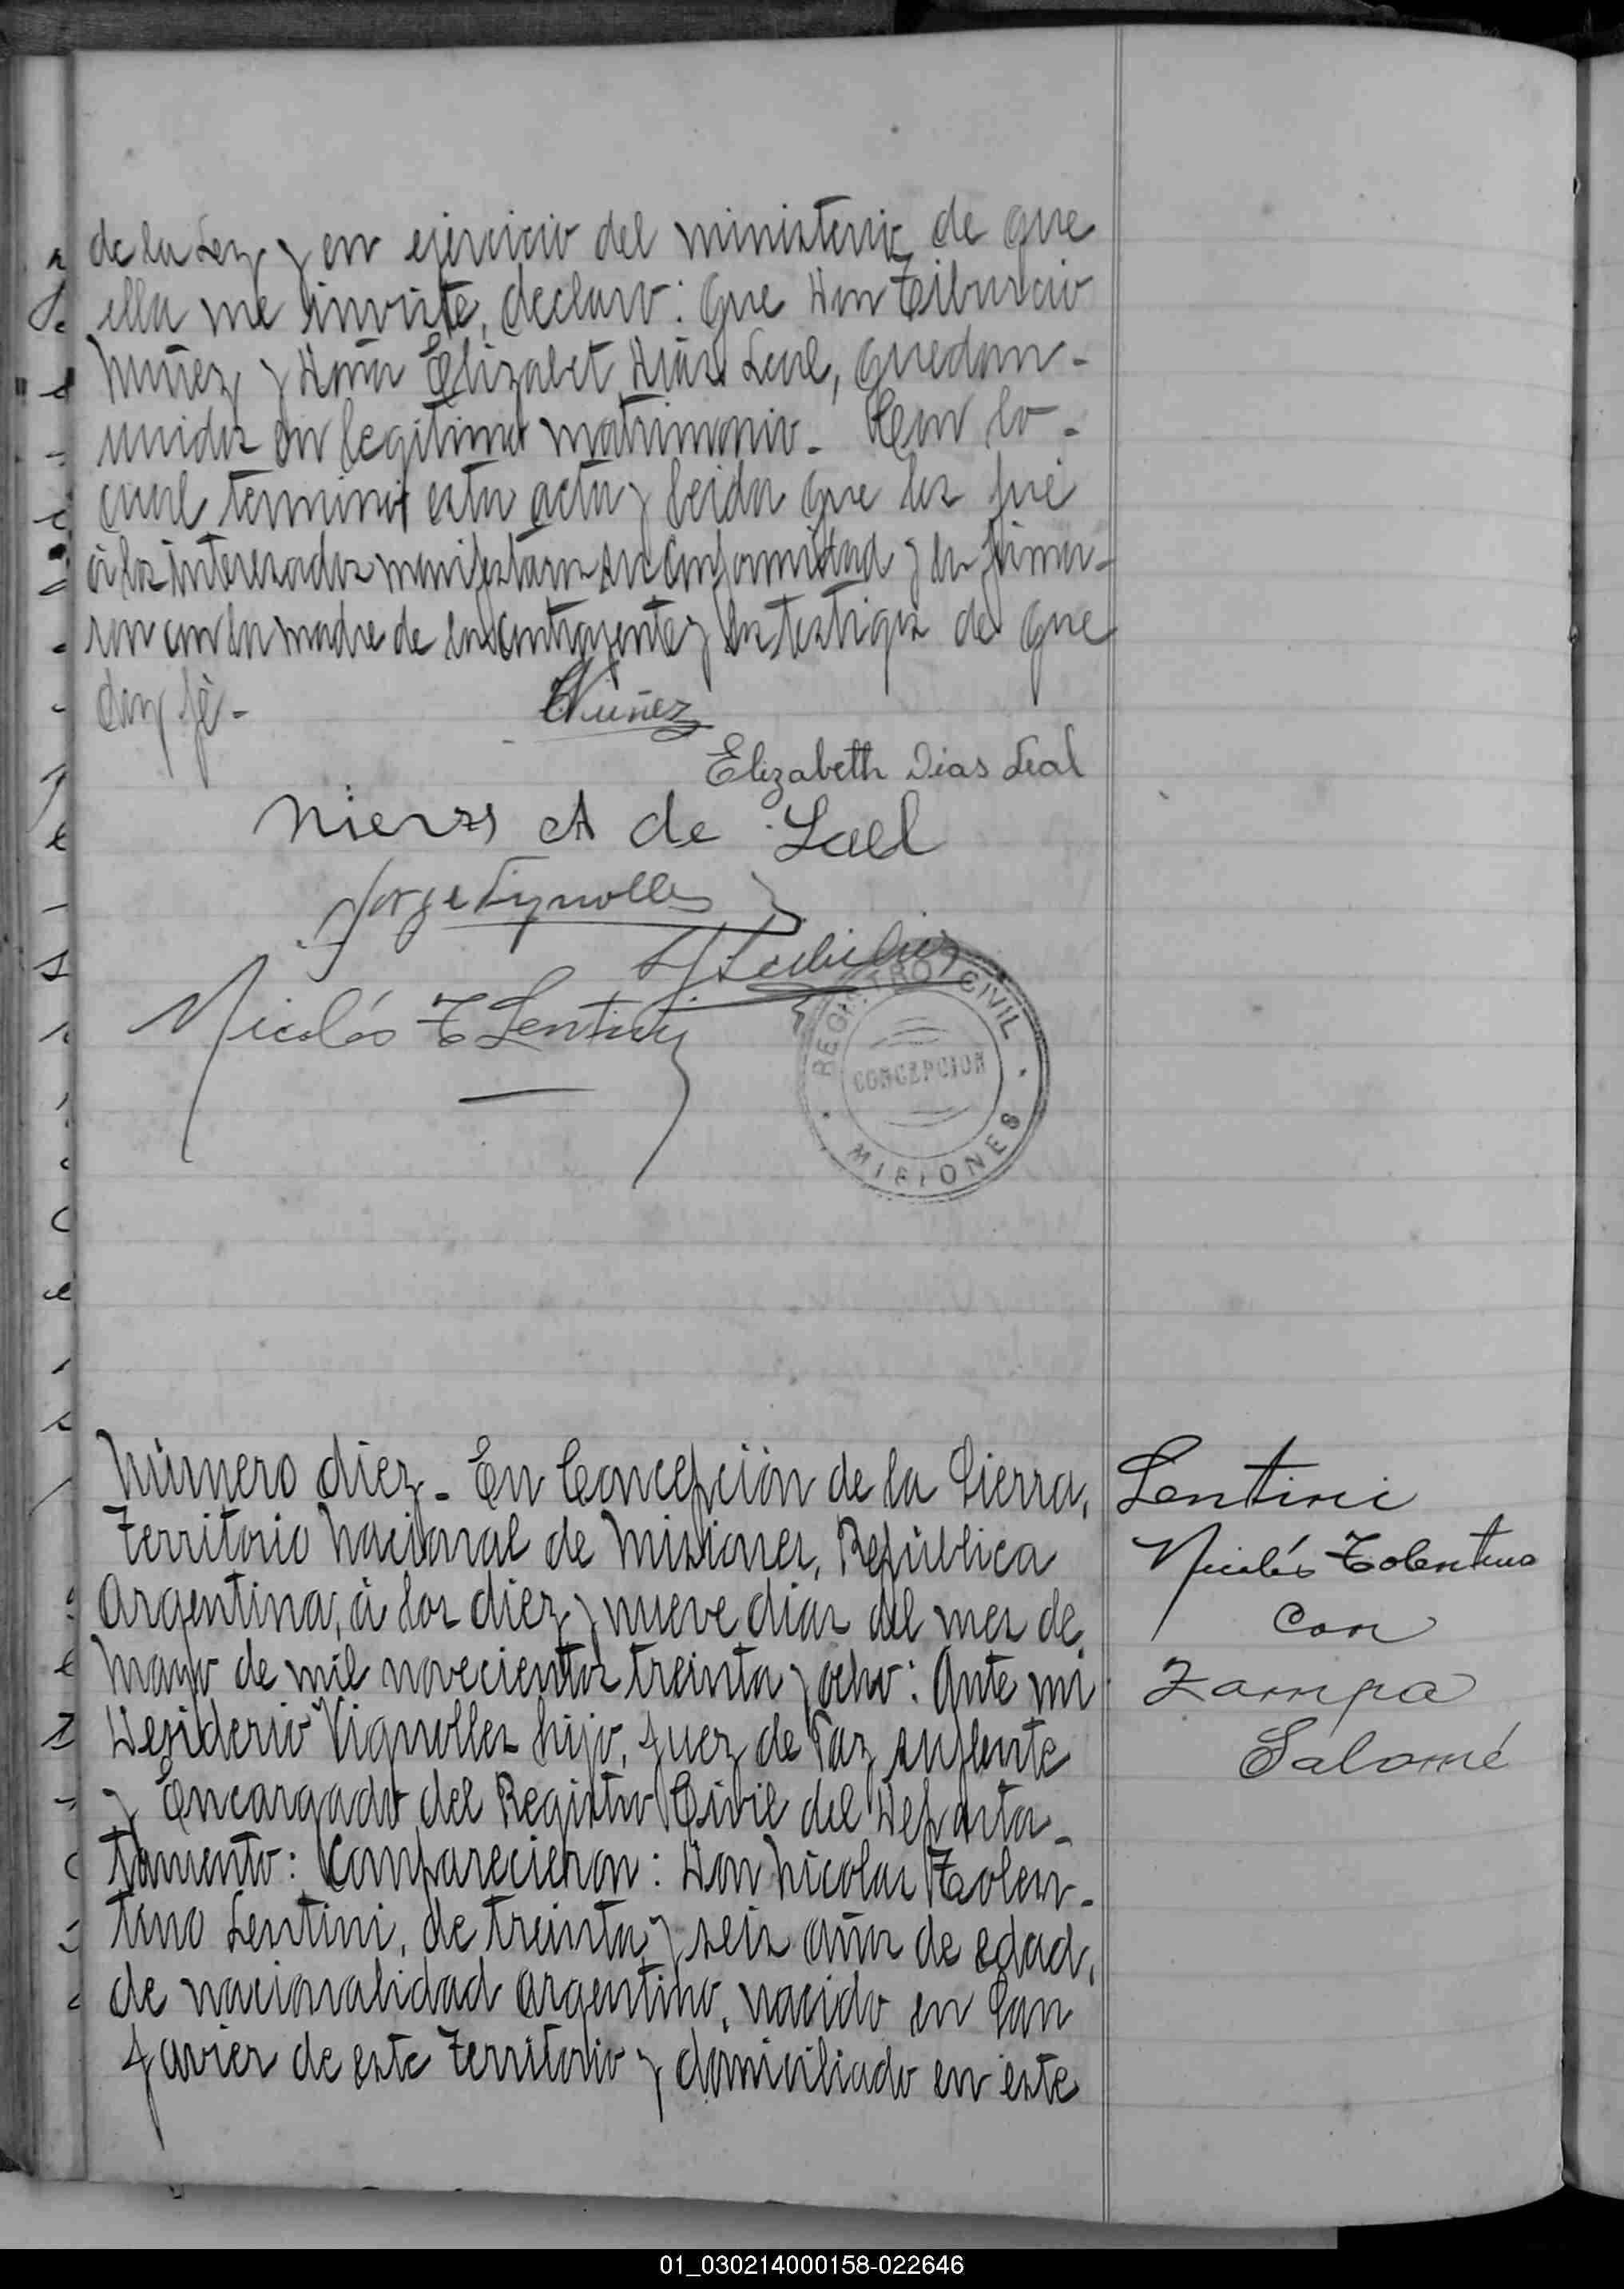 de la Ley y en ejercicio del ministerio de que
ella me inviste, declaro: Que Don Tiburcio
Nuñez y Doña Elizabet Dias Leal, quedan-
unidos en legitimo matrimonio. Con lo-
cual terminó esta acta y leida que les fué
á los interesados manifestaron su conformidad y la firma-
ron con la madre de la contrayente y los testigos de que
doy fé-
Nuñez
Elizabeth Dias Leal
A de Leal
Jorge Vignolles
Nicolás T Lentini
REGISTRO CIVIL
CONCEPCION
MISIONES
Número diez. En Concepción de la Sierra,
Territorio Nacional de Misiones, República
Argentina, á los diez y nueve dias del mes de
Mayo de mil novecientos treinta y ocho: Ante mi
Desiderio Vignolles hijo, Juez de Paz suplente
y Encargado del Registro Civil del Departa-
tamento: Comparecieron: Don Nicolas Tolen-
tino Lentini, de treinta y seis años de edad,
de nacionalidad argentino, nacido en San
Javier de este Territorio y domiciliado en este
Lentini
Nicolás Tolentino
con
Zampa
Salomé
01_030214000158-022646